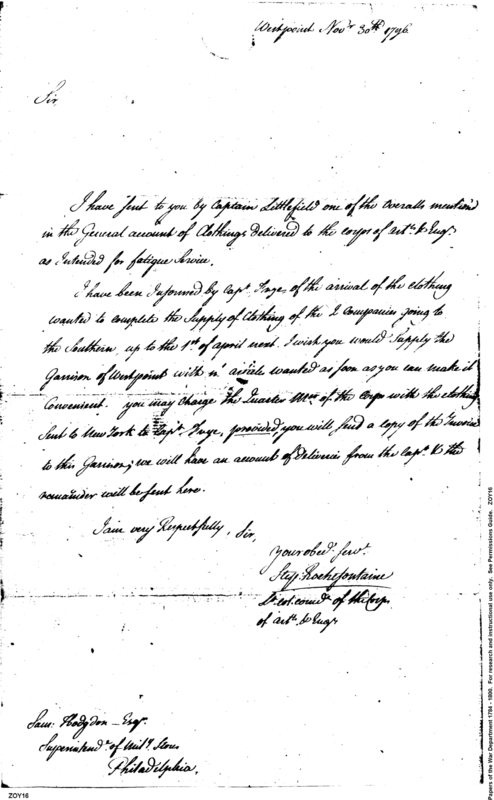 Westpoint Novr. 30th 1796
Sir
I have sent to you by Captain Littlefield one of the Overalls mention'd
in the General account of Clothings Delivered to the corps of arty. & Engs.
as Intended for fatigue Service.
I have been Informed by Capt. Frye, of the arrival of the clothing
wanted to complete the Supply of Clothing of the 2 Companies going to
the Southern up to the 1st of april next. I wish you would Supply the
Garrison of Westpoint with articles wanted as soon as you can make it
Convenient. you may Charge the Quarter Mter of the Corps with the clothing
Sent to New York to Capt. Frye, provided, you will send a copy of the Invoice
to this Garrison; we will have an account of Deliveries from the Capt. & the
remainder will be sent here.
I am very Respectfully, Sir,
Your obedt. Servt.
Step. Rochefontaine
Lt. col. comdt. of the Corps
of arty. & Engs.
Saml. Hodgdon - Esqr.
Superintendt. of Mily. Stores
Philadelphia.
ZOY16
Papers of the War Department 1784 - 1800. For research and instructional use only. See Permissions Guide. ZOY16